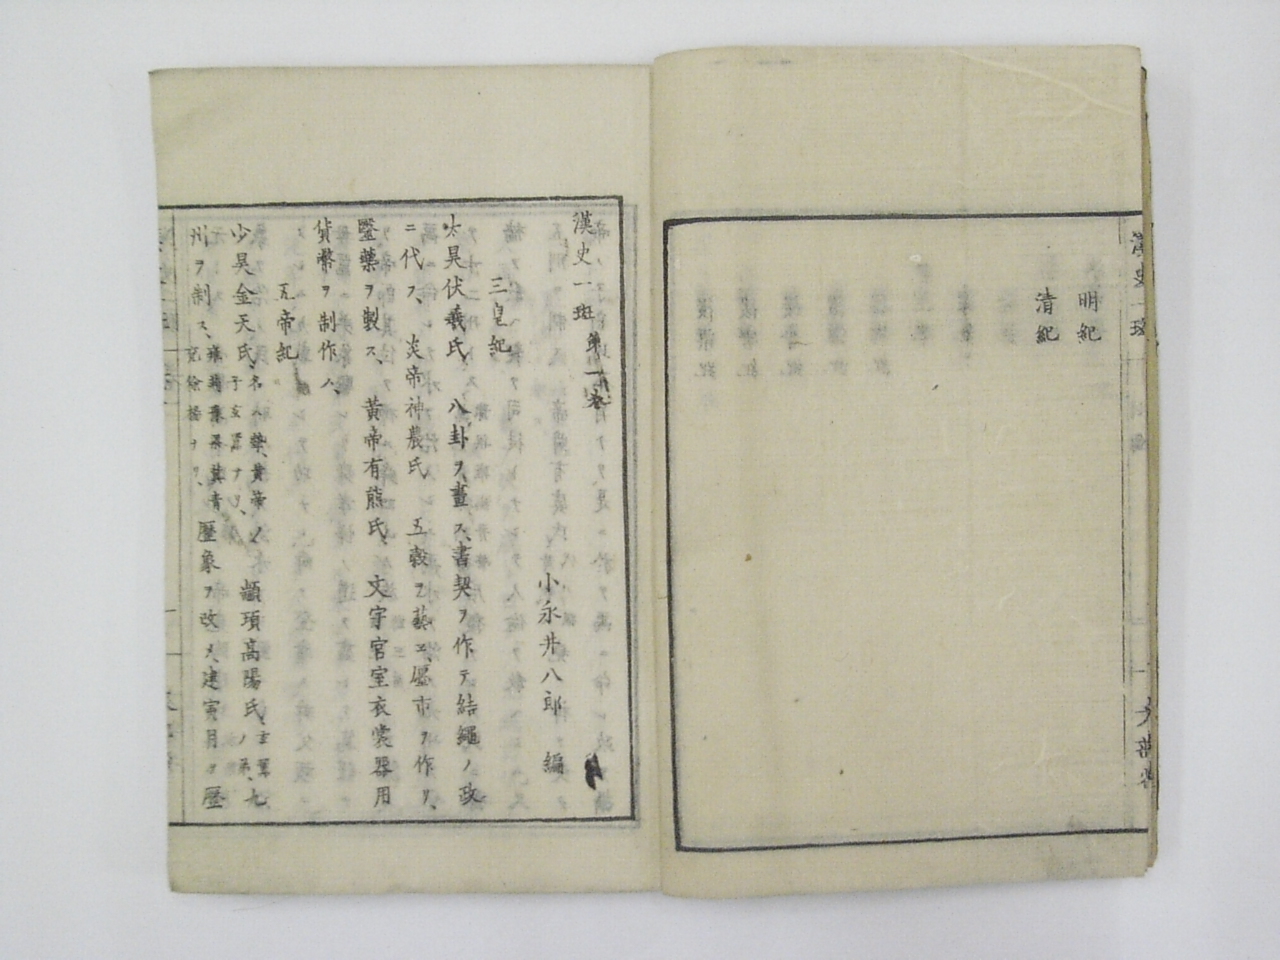 明紀
清紀
漢史一斑
漢史一斑 第一巻
小永井八郎 編
三皇紀
太昊伏羲氏、八卦ヲ畫ス、書契ヲ作テ結繩ノ政
ニ代フ、炎帝神農氏 五穀ヲ藝ヱ、廛市ヲ作リ、
醫藥ヲ製ス、黄帝有熊氏、文字官室衣裳器用
貨幣ヲ制作ス、
五帝紀
少昊金天氏、名ハ摯、黄帝ノ子玄囂ナリ、顓頊高陽氏、玄囂ノ弟、九
州ヲ制ス、雍荊豫梁冀青兗徐揚ナリ、歴象ヲ改メ、建寅月ヲ歴